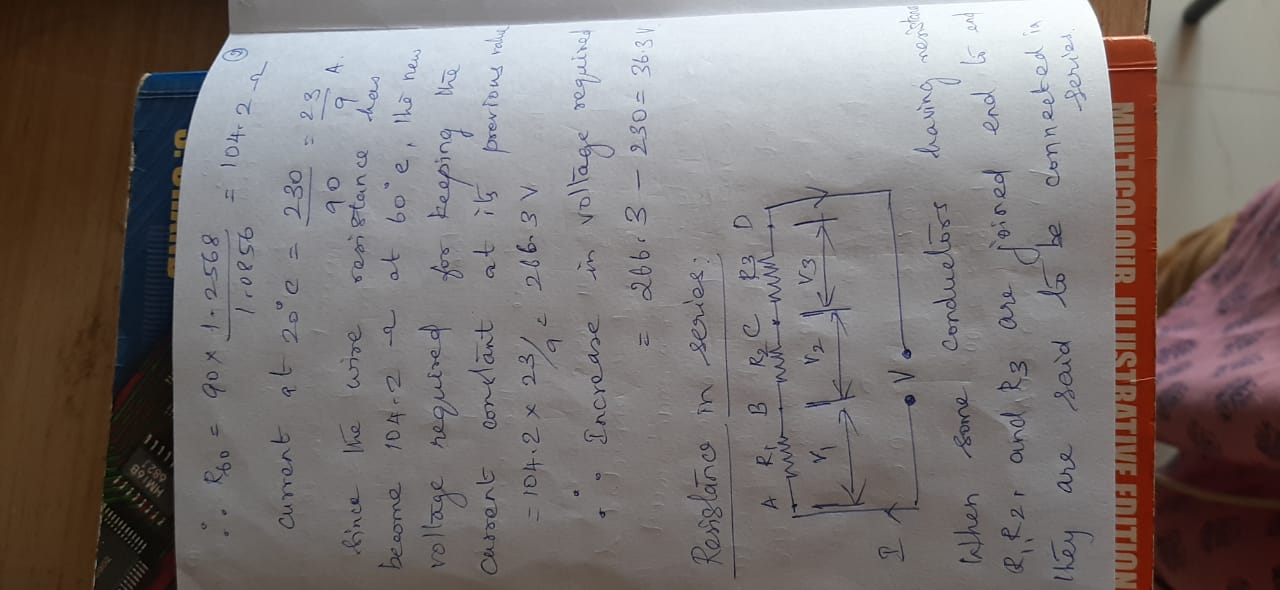 ④
∴ R₆₀ = 90 × 1.2568 / 1.0856 = 104.2 Ω
current at 20°c = 230 / 90 = 23 / 9 A.
since the wire resistance has
become 104.2 Ω at 60°c, the new
voltage required for keeping the
current constant at its previous value
= 104.2 × 23/9 = 266.3 V
∴ Increase in voltage required
= 266.3 - 230 = 36.3 V
Resistance in series:
A R1 B R2 C R3 D
V1 V2 V3
I V
When some conductors having resistances
R1, R2, and R3 are joined end to end
they are said to be connected in
series.
MULTICOLOUR ILLUSTRATIVE EDITION
S. CHAND
HM16B